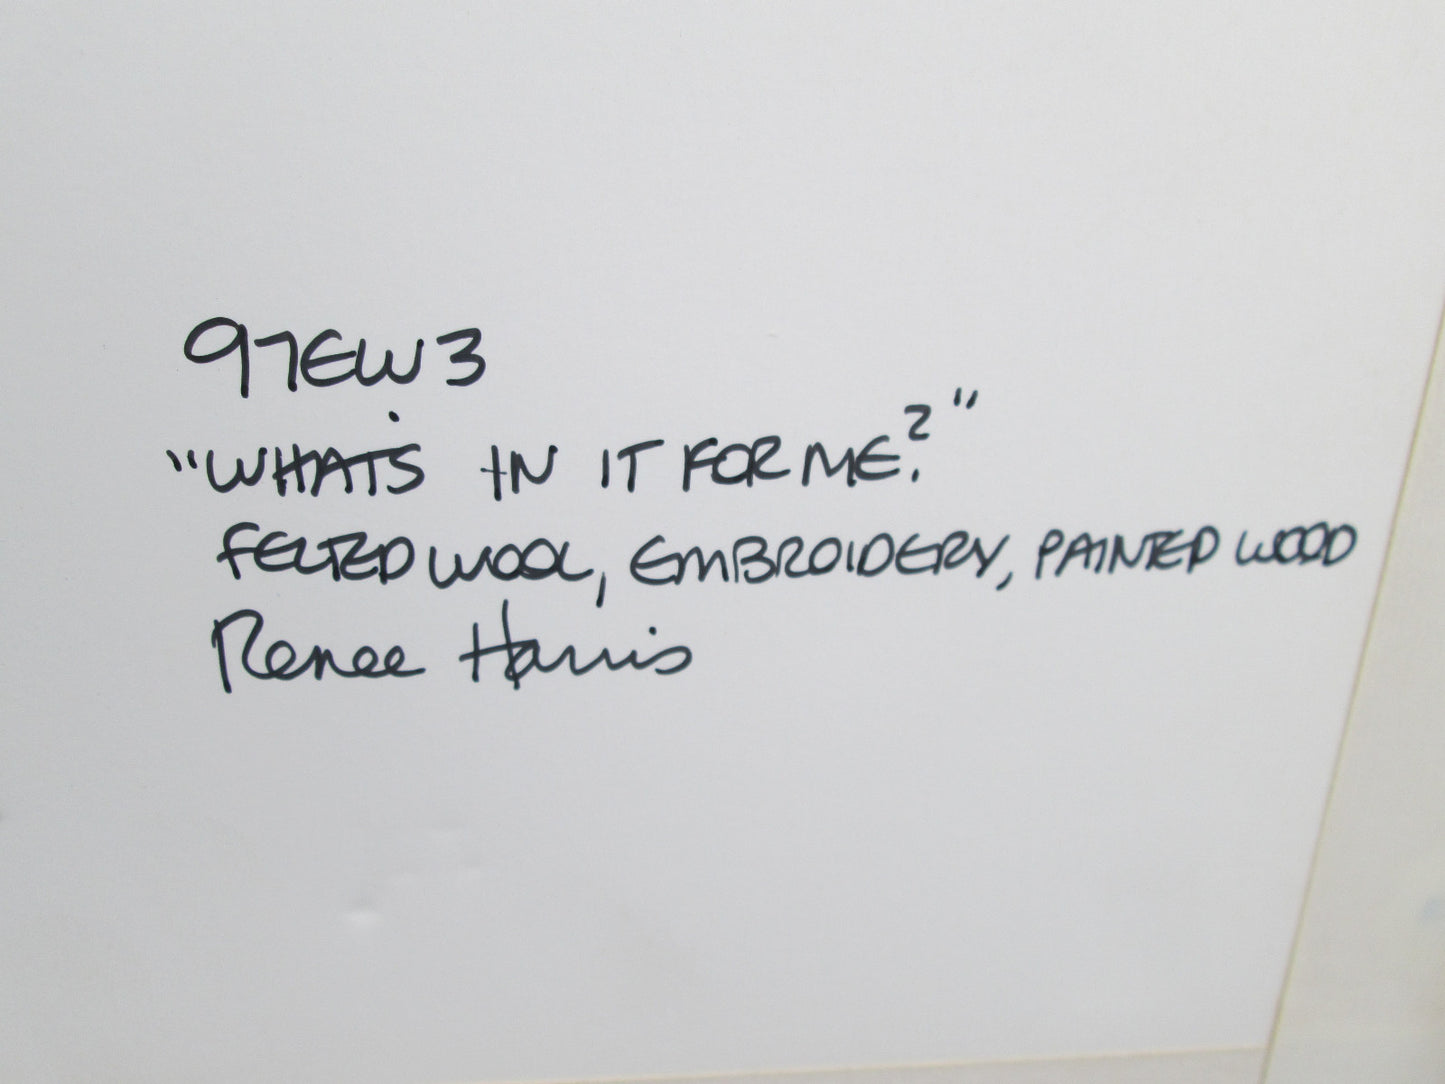 97EW3
"WHAT'S IN IT FOR ME?"
FELTED WOOL, EMBROIDERY, PAINTED WOOD
Renee Harris